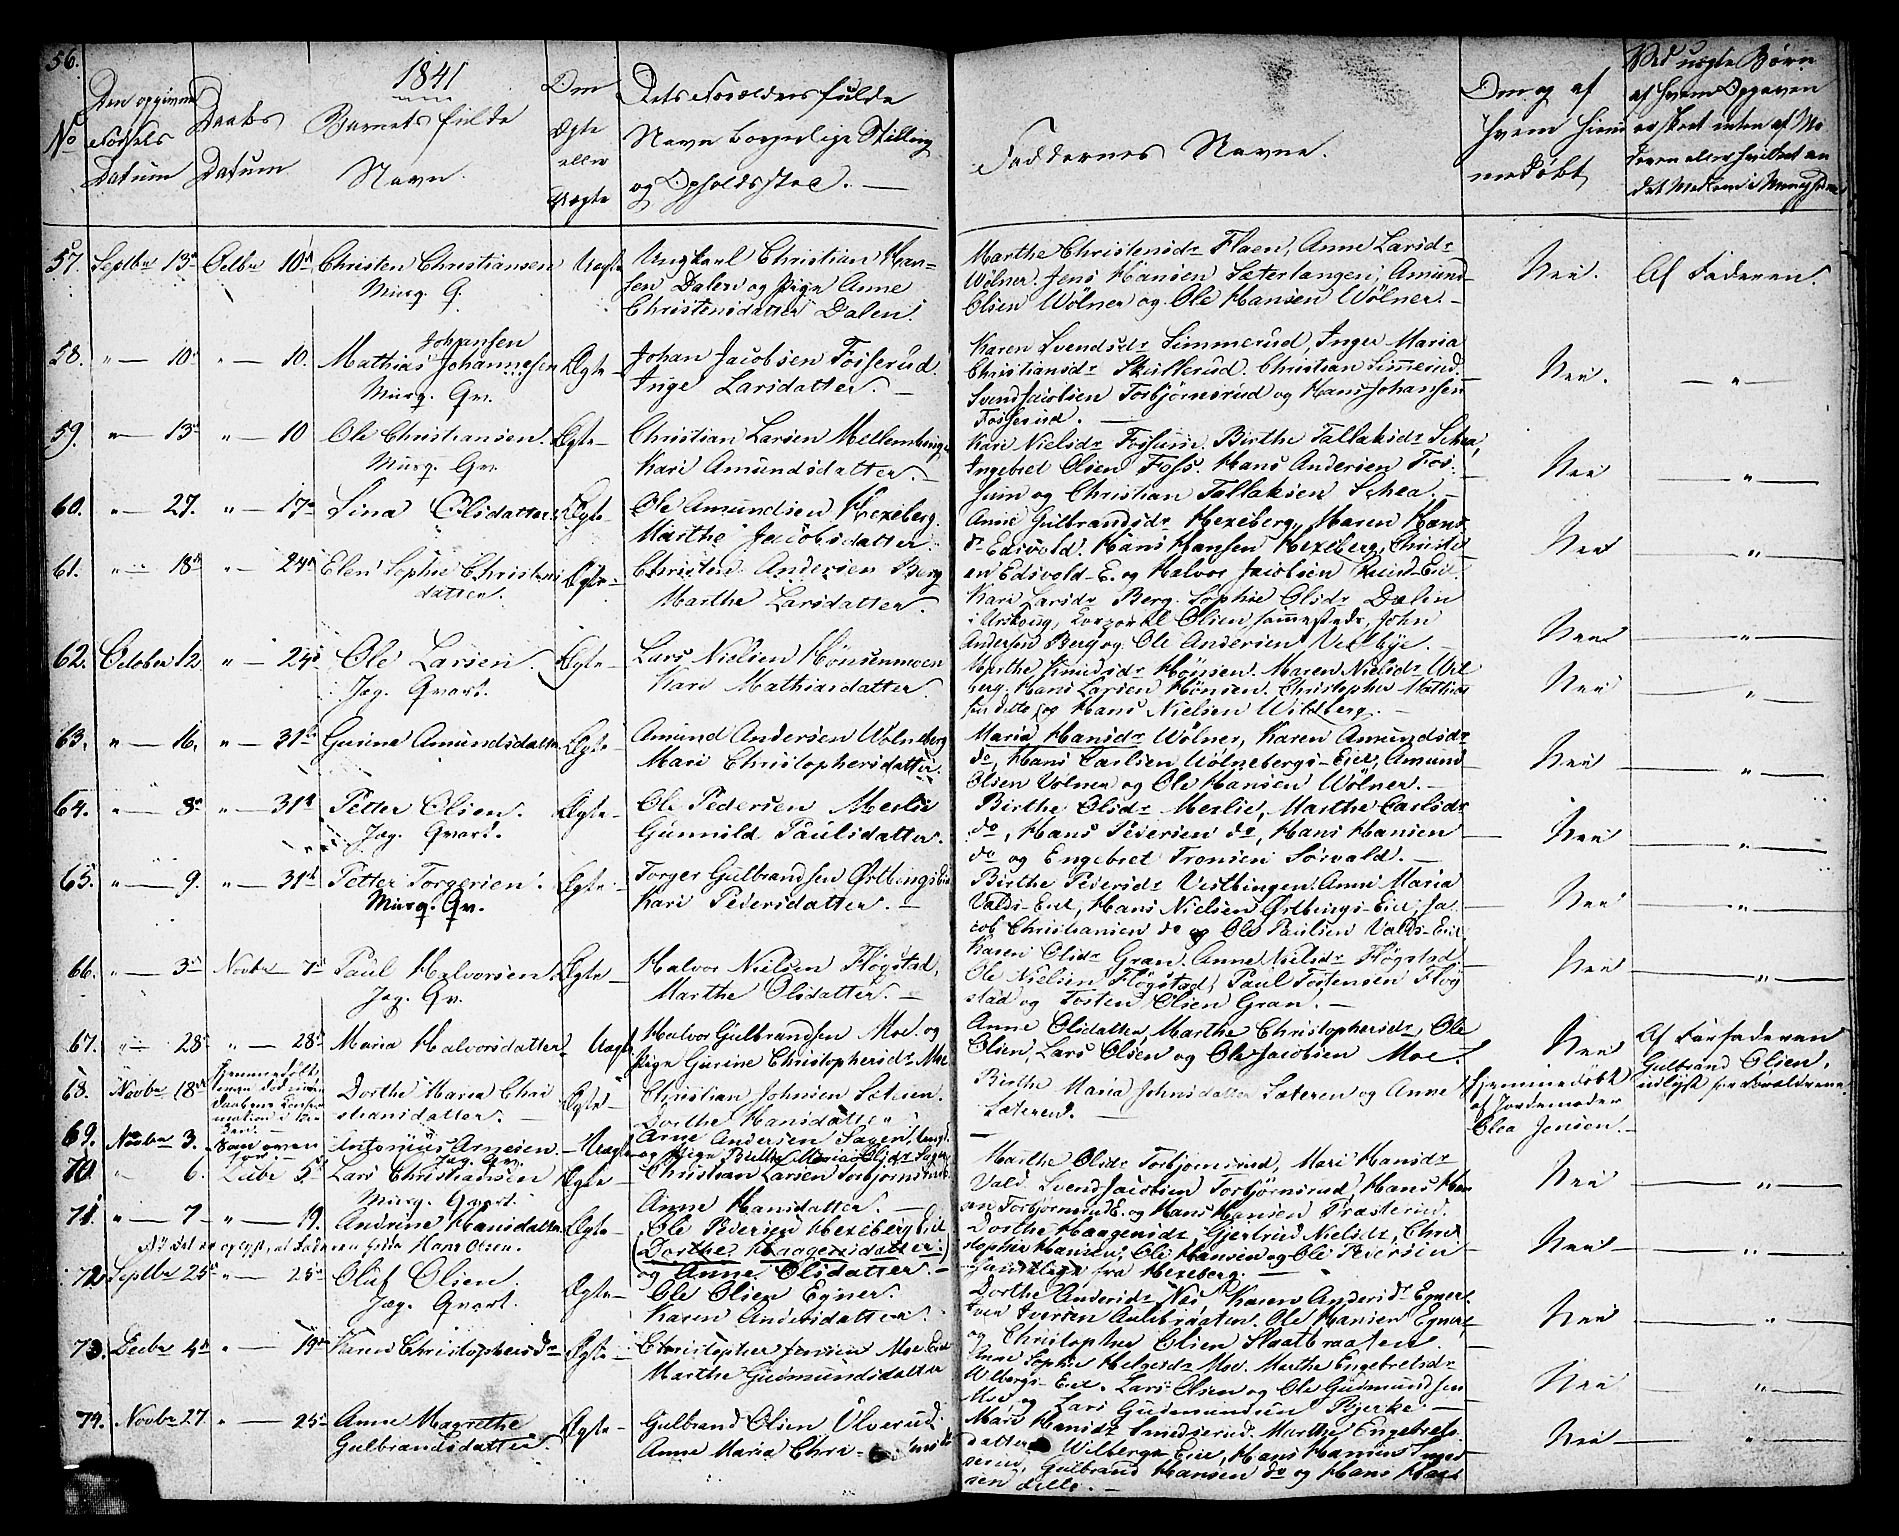 56.
1841
No
Den opgivne Fødsels Datum
Daabs Datum
Barnets fulde Navn.
Om Ægte eller Uægte
Dets Forældres fulde Navn borgerlige Stilling og Opholdssted. —
Faddernes Navne.
Om og af hvem hjemmedøbt
Ved uægte Børn af hvem Opgaven er skeet
57. Septbr 13de Octbr 10de Christen Christiansen Uægte Ungkarl Christian Han-
Murq. G. sen Dalen og Pige Anne
Christensdatter Dalen.
Marthe Christensdr Flaen, Anne Larsdr
Wölner. Jens Hansen Sæterlangen, Amund
Olsen Wölner og Ole Hansen Wölner. —
Nei. Af Faderen.
58. " — 10de " — 10. Mathias Johannesen Ægte — Johan Jacobsen Fosserud.
Johansen
Murq. Qv. Inge Larsdatter. —
Karen Svendsdr Simmerud, Inger Maria
Christiansdr Christian Simerud.
Svend Jacobsen Torbjørnsrud og Hans Johansen
Fosserud.
Nei. — " —
59. " — 13de " — 10 Ole Christiansen. Ægte — Christian Larsen Mellembinge
Murq. Qv. Kari Amundsdatter. —
Kari Nielsdr Fossum, Birthe Tallaksdr Schea,
Ingebret Olsen Foss. Hans Andersen Fos-
sum og Christian Tallaksen Schea. —
Nei — " —
60. " — 27. " — 17de Lina Olsdatter. Ægte — Ole Amundsen Hexeberg.
Marthe Jacobsdatter.
Anne Gulbrandsdr Hexeberg, Maren Hans-
dr Edsvold. Hans Hansen Hexeberg, Christi-
an Edsvold-E. og Halvor Jacobsen Ruud-Eie.
Nei — " —
61. " — 18de " — 24de Elen Sophie Christens- Ægte — Christen Andersen Berg
datter. Marthe Larsdatter.
Kari Larsdr Berg. Sophie Olsdr Dælin
i Arskoug, Corporal Olsen sammesteds, John
Andersen Berg og Ole Andersen Velbye. —
Nei — " —
62. October 12 " — 24de Ole Larsen. Ægte — Lars Nielsen Hönsenmoen
Jag. Qvart. Kari Mathiasdatter.
Marthe Hönsen. Maren Nielsdr Wil-
berg. Hans Larsen Hönsen. Christopher Mathias-
sen ditto og Hans Nielsen Wildberg. —
Nei — " —
63. " — 16. " — 31te Gurine Amundsdatter Ægte — Amund Andersen Wölneberg
Mari Christophersdatter.
Maria Hansdr Wölner, Karen Amundsdr
do, Hans Carlsen Wölnebergs-Eiet, Amund
Olsen Volner og Ole Hansen Wölner. —
Nei — " —
64. " — 8de " — 31te Petter Olsen. Ægte — Ole Pedersen Meslie
Jag. Qvart. Gunnild Paulsdatter.
Birthe Olsdr Meslie, Marthe Carlsdr
do, Hans Pedersen do, Hans Hansen
do og Engebret Tronsen Sörvald. —
Nei — " —
65. " — 9. " — 31te Petter Torgersen. Ægte — Torger Gulbrandsen Østbings Eie
Murq. Qv. Kari Pedersdatter. —
Birthe Pedersdr Vestbingen. Anne Maria
Valds-Eiet, Hans Nielsen Østbings-Eiet, Ja-
cob Christiansen do og Ole Paulsen Valds-Eiet
Nei — " —
66. " — 3de Novbr — 7de Paul Halvorsen. Ægte — Halvor Nielsen Fløgstad,
Jag. Qv. Marthe Olsdatter. —
Karen Olsdr Gran. Anne Nielsdr Fløgstad.
Ole Nielsen Fløgstad, Paul Torstensen Fløg-
stad og Torsten Olsen Gran. —
Nei — " —
67. " — 28de " — 28de Maria Halvorsdatter — Uægte Halvor Gulbrandsen Moe. og
Pige Gurine Christophersdr Moe
Anne Olsdatter, Marthe Christophersdr, Ole
Olsen, Lars Olsen og Ole Jacobsen Moe
Nei Af Farfaderen
Gulbrand Olsen,
68. Novbr 18de Hjemmedøbt Dorthe Maria Chri- Ægte Christian Johnsen Sæteren.
stiansdatter. — Dorthe Hansdatter
Birthe Maria Johnsdatter Sæteren og Anne
Sæteren.
Hjemmedøbt
af Jordemoder
Olea Jensen. —
69. Novbr 3. Som oven for Antonius Arnesen. — Uægte Arne Andersen Sagen Ungk.
Jag. Qv. og Pige Birthe Maria Olsdr Sagen
70. " 6. Decbr 5te Lars Christiansen Ægte — Christian Larsen Torbjørnsrud
Murq. Qvart. Anne Hansdatter. —
Marthe Olsdr Torbjornsrud, Mari Hansdr
Vald. Svend Jacobsen Torbjörnsrud, Hans Han-
sen Torbjornsrud E. og Hans Hansen Træsterud.
Nei — " —
71. " — 7 — " — 19. Andrine Hansdatter Ægte — Ole Pedersen Hexeberg Eiet
(Dorthe Haagensdatter)
og Anne Olsdatter. —
Dorthe Haagensdr, Gjertrud Nielsdr, Chri-
stopher Hansen, Ole Hansen og Ole Pedersen
samtlige fra Hexeberg. —
Nei — " —
72. Septbr 25de " — 25de Oluf Olsen. Ægte — Ole Olsen Egner.
Jag. Qvart. Karen Andersdatter.
Dorthe Andersdr Næs Karen Andersdr Egner.
Iver Iversen Aulibraaten. Ole Hansen Egner,
og Christopher Olsen Slaatbraaten.
Nei — " —
73. Decbr 4de " — 19de Christophersdr Ægte — Christopher Jensen Moe Eiet
Marthe Gudmundsdatter
Anne Sophie Helgesdr Moe. Marthe Engebretsdr
Wilbergs-Eiet. Lars Olsen og Ole Gudmundsen
Moe, og Lars Gudmundsen Kjerke. —
Nei — " —
74. Novbr 27. " — 25de Anne Magrethe Ægte — Gulbrand Olsen Ulverud.
Gulbrandsdatter. Anne Maria Chri-
Mari Hansdr Smedsrud. Marthe Engebrets-
datter Wilbergs Eie, Hans Hansen Smed-
Gulbrand Hansen do og Hans Han-
sen ditto. —
Nei — "